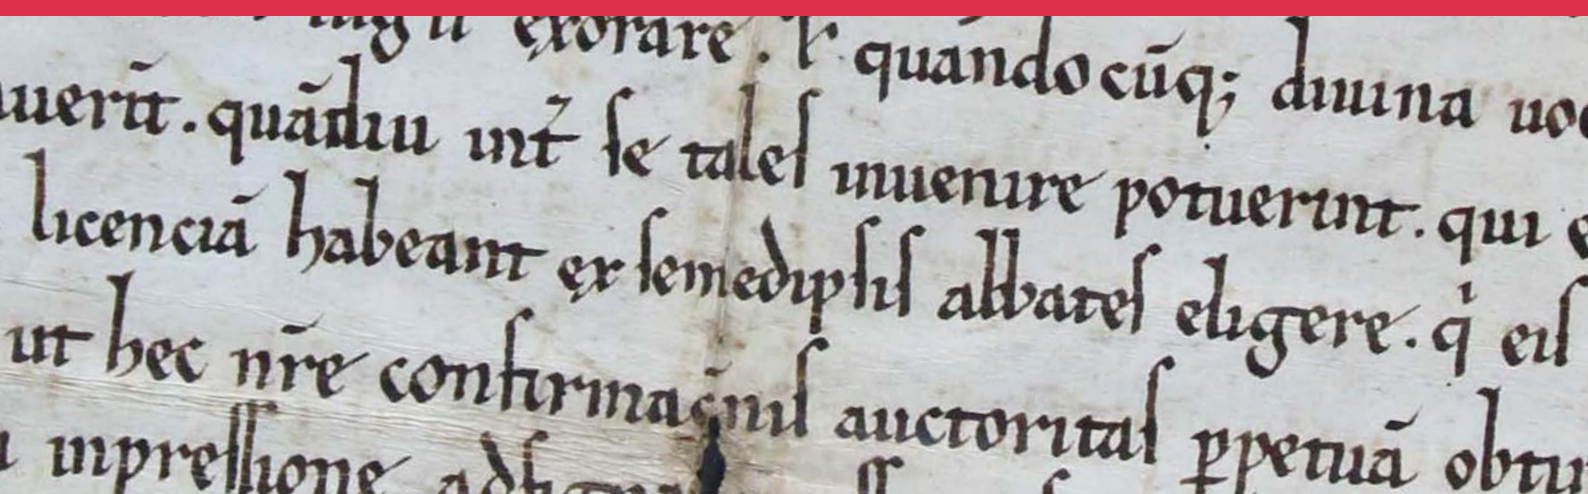 exorare. quandocūq; diuina
uerīt. quādiu int̄ se tales inuenire potuerint. qui
licenciā habeant ex semedipsis abbates eligere. q̇ eis
ut hec nr̄e confirmac̄nis auctoritas ꝑpetuā
inpressione